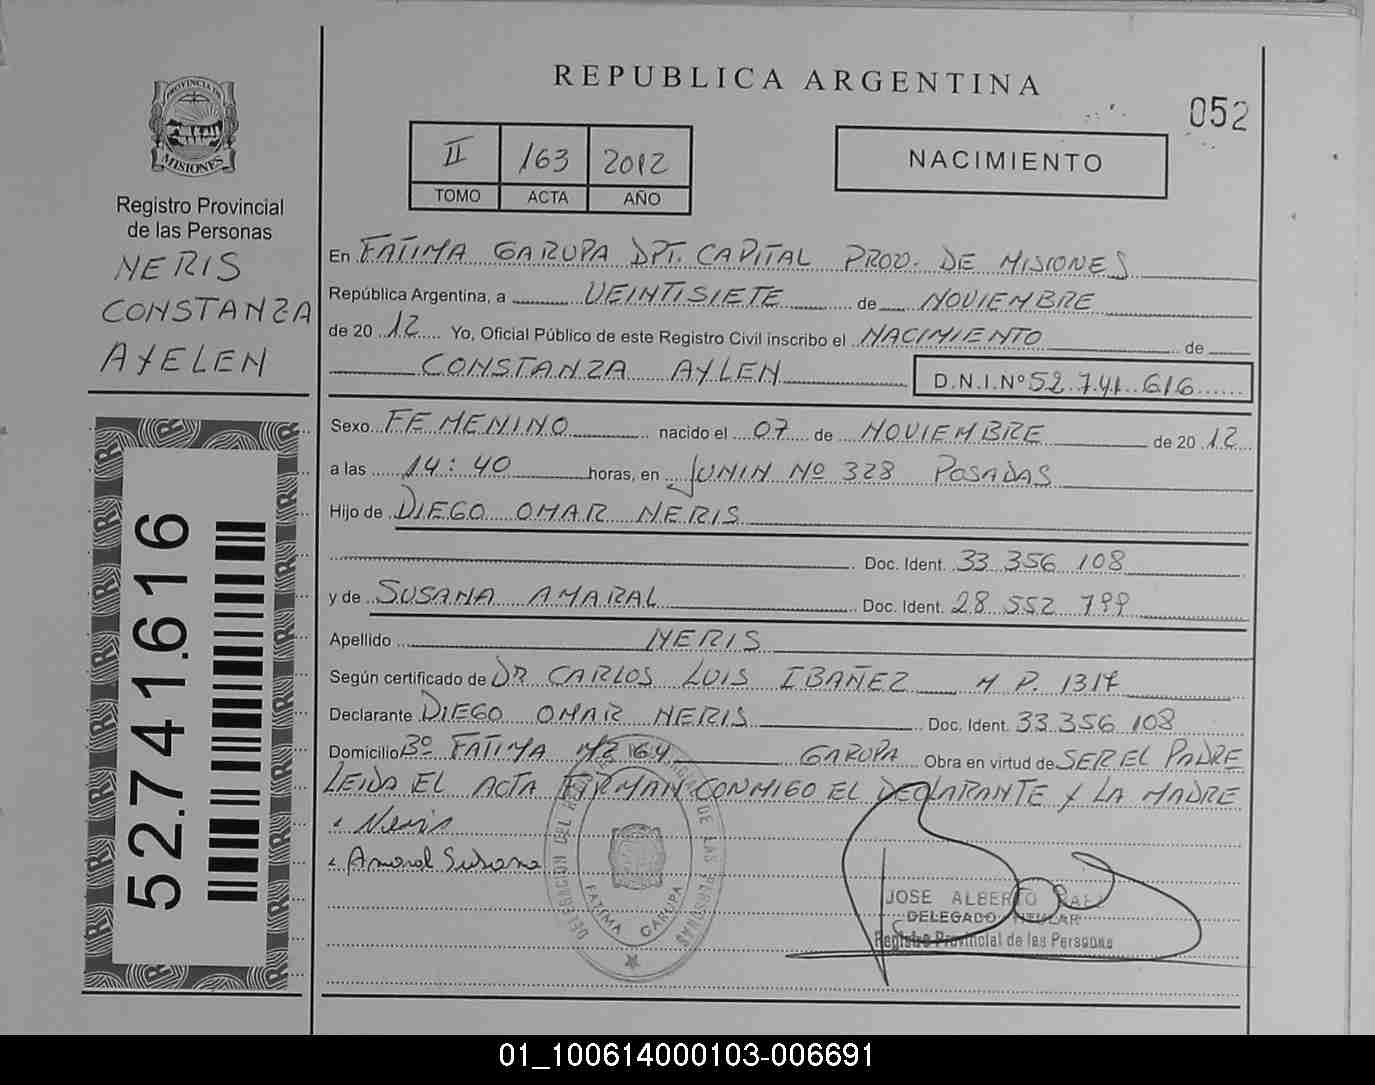 REPUBLICA ARGENTINA
052
PROVINCIA DE MISIONES
Registro Provincial
de las Personas
NERIS
CONSTANZA
AYELEN
52.741.616
II 163 2012
TOMO ACTA AÑO
NACIMIENTO
En FATIMA GARUPA DPT. CAPITAL PROV. DE MISIONES
República Argentina, a VEINTISIETE de NOVIEMBRE
de 2012 Yo, Oficial Público de este Registro Civil inscribo el NACIMIENTO de
CONSTANZA AYLEN D.N.I.Nº 52.741.616
Sexo FEMENINO nacido el 07 de NOVIEMBRE de 2012
a las 14:40 horas, en JUNIN Nº 328 POSADAS
Hijo de DIEGO OMAR NERIS
Doc. Ident. 33 356 108
y de SUSANA AMARAL Doc. Ident. 28 552 799
Apellido NERIS
Según certificado de DR CARLOS LUIS IBAÑEZ M P. 1317
Declarante DIEGO OMAR NERIS Doc. Ident. 33 356 108
Domicilio Bº FATIMA MZ 164 GARUPA Obra en virtud de SER EL PADRE
LEIDA EL ACTA FIRMAN CONMIGO EL DECLARANTE Y LA MADRE
Neris
Amaral Susana
DELEGACION DEL DE LAS PERSONAS
FATIMA GARUPA
JOSE ALBERTO
DELEGADO TITULAR
Registro Provincial de las Personas
01_100614000103-006691